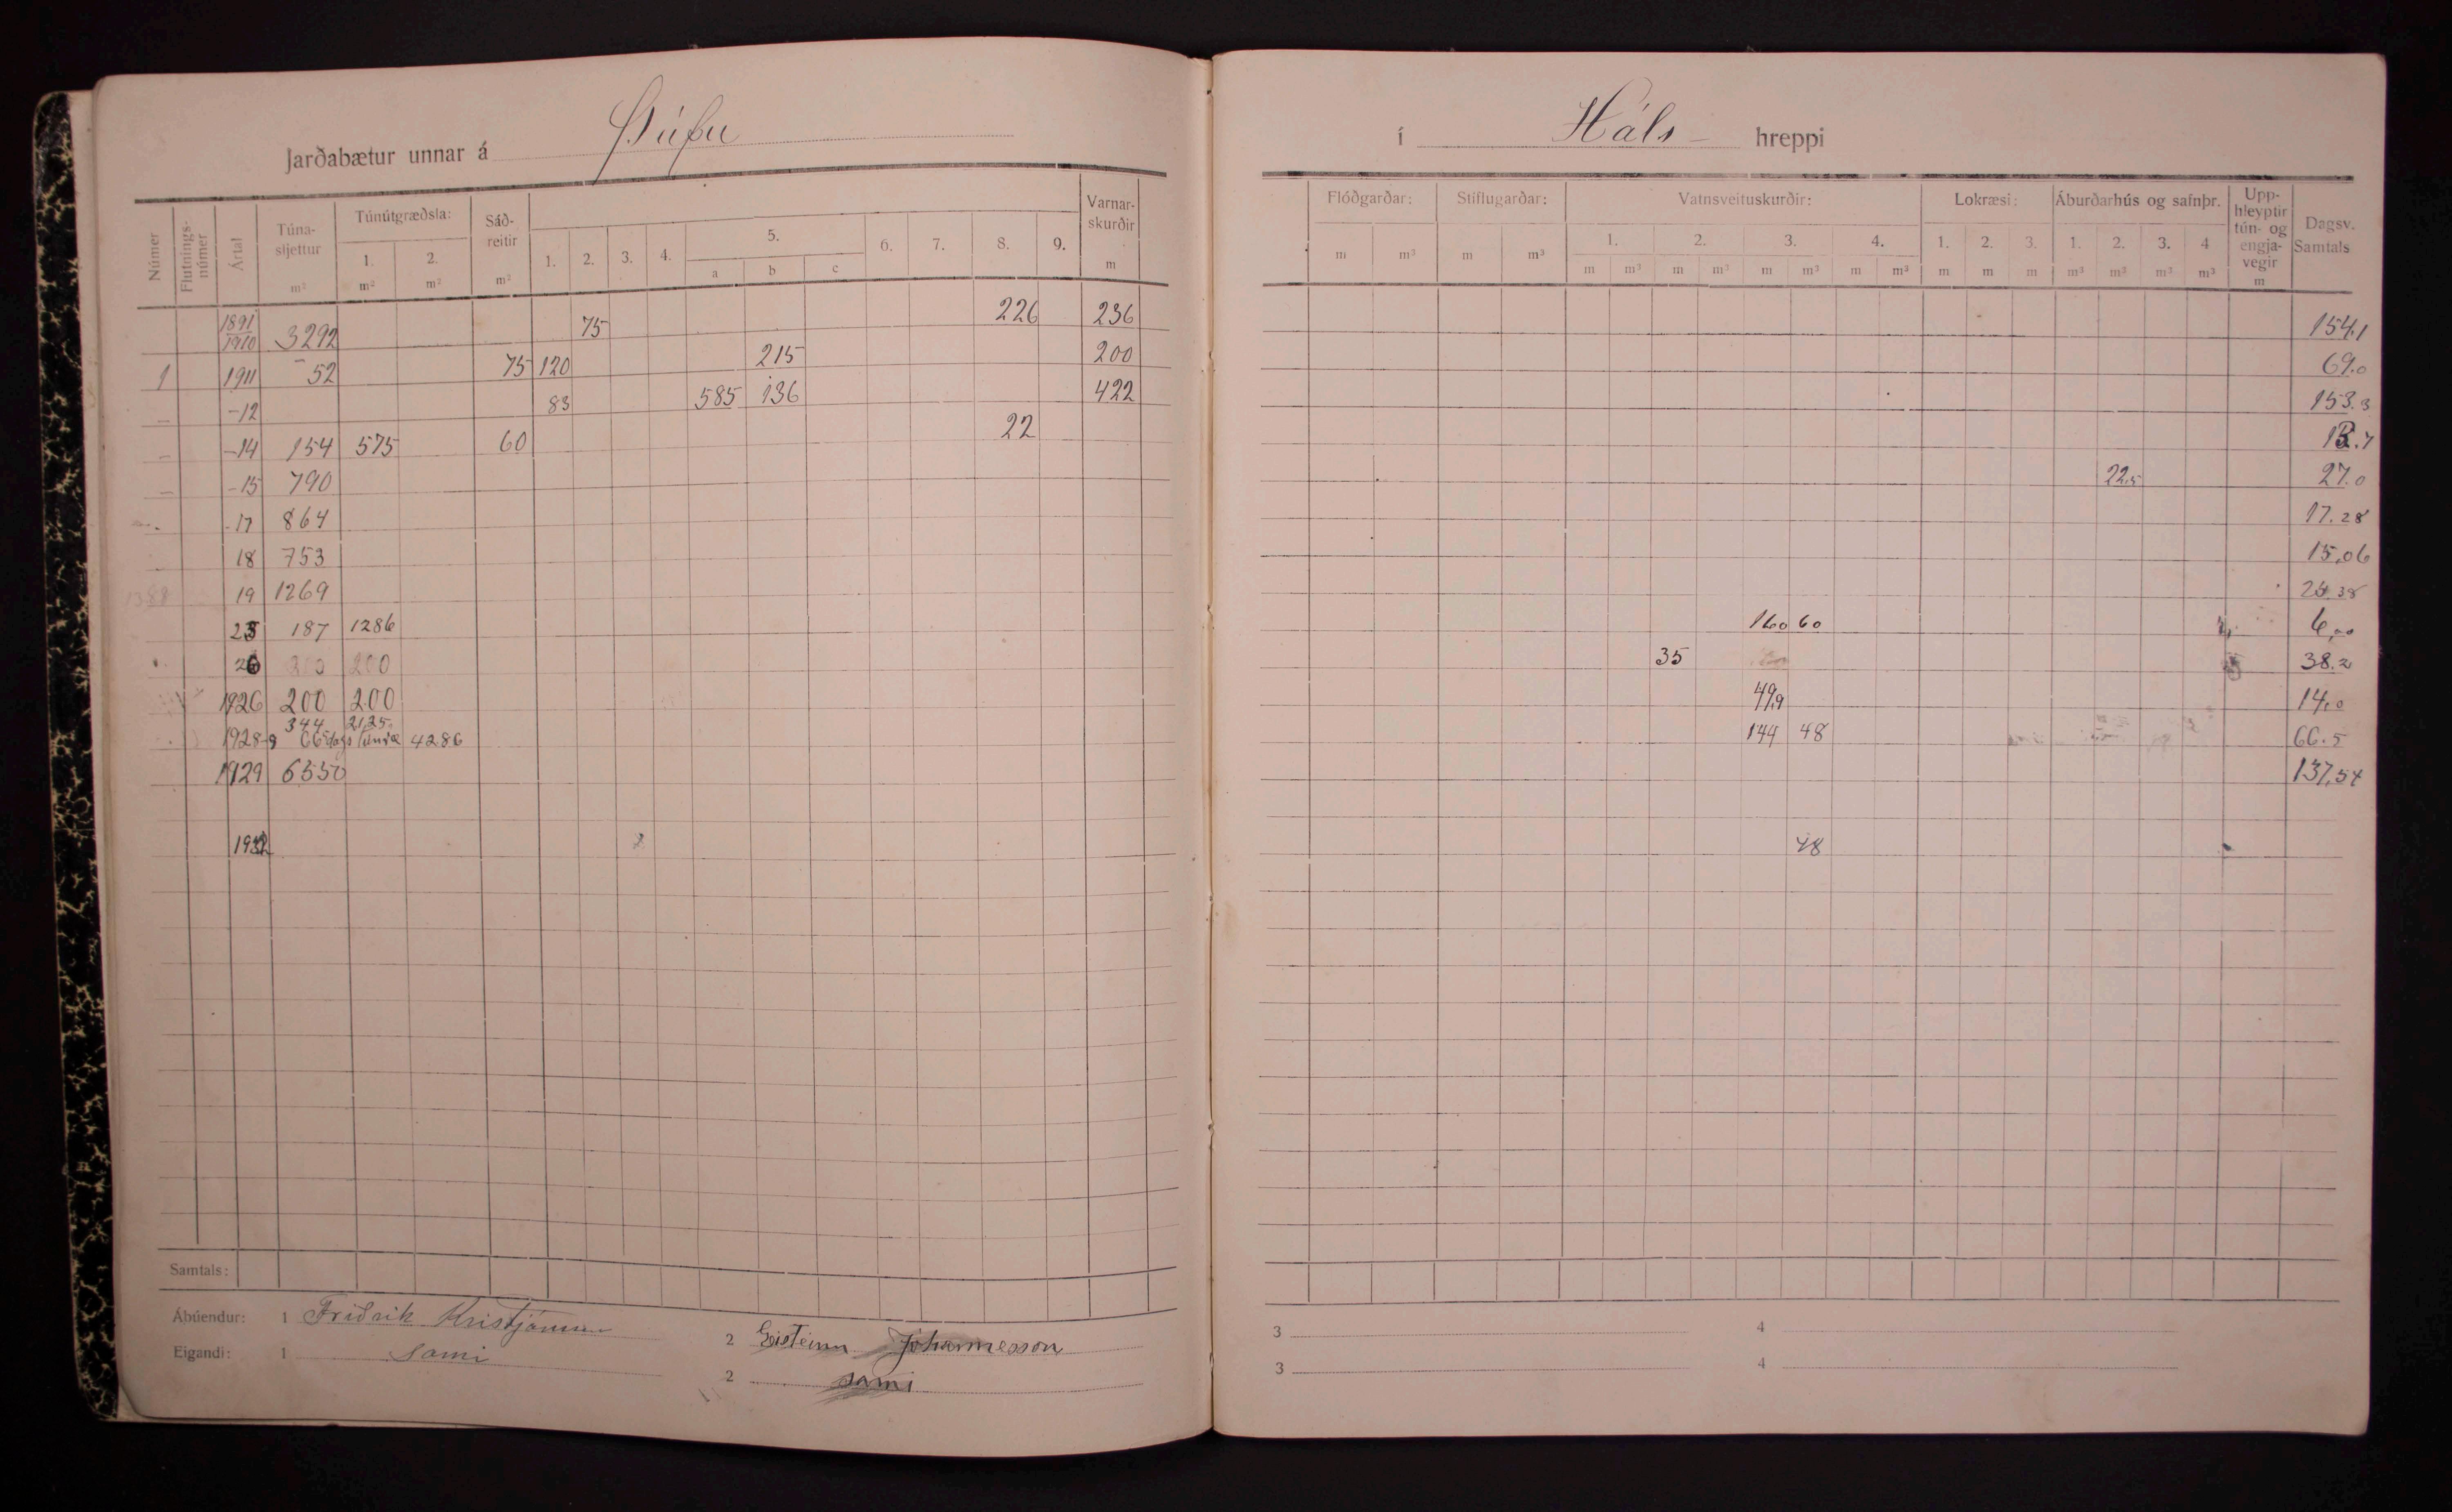 Jarðabætur unnar á Þúfu
Númer Flutnings-númer Ártal Túna-sljettur m² Túnútgræðsla: 1. m² 2. m² Sáð-reitir m² 1. 2. 3. 4. 5. a b c 6. 7. 8. 9. Varnar-skurðir m
1891/1910 3292 75 226 236
1 1911 52 75 120 215 200
– -12 83 585 136 422
– -14 154 575 60 22
– -15 790
-17 864
18 753
19 1269
25 187 1286
26 200
1926 200 200
344 2125
1928-9 4286
1929 6550
1932
Samtals:
Ábúendur: 1 Friðrik Kristjánsson 2 Eisteinn Jóhannesson
Eigandi: 1 Sami 2 sami
í Háls- hreppi
Flóðgarðar: m m³ Stíflugarðar: m m³ Vatnsveituskurðir: 1. m m³ 2. m m³ 3. m m³ 4. m m³ Lokræsi: 1. m 2. m 3. m Áburðarhús og safnþr. 1. m³ 2. m³ 3. m³ 4 m³ Upp-hleyptir tún- og engja-vegir m Dagsv. Samtals
154,1
69.0
153.3
22.5 27.0
17.28
15,06
160 60 6,00
35 38.2
49,9 14,0
144 48 66.5
137,54
48
3 4
3 4